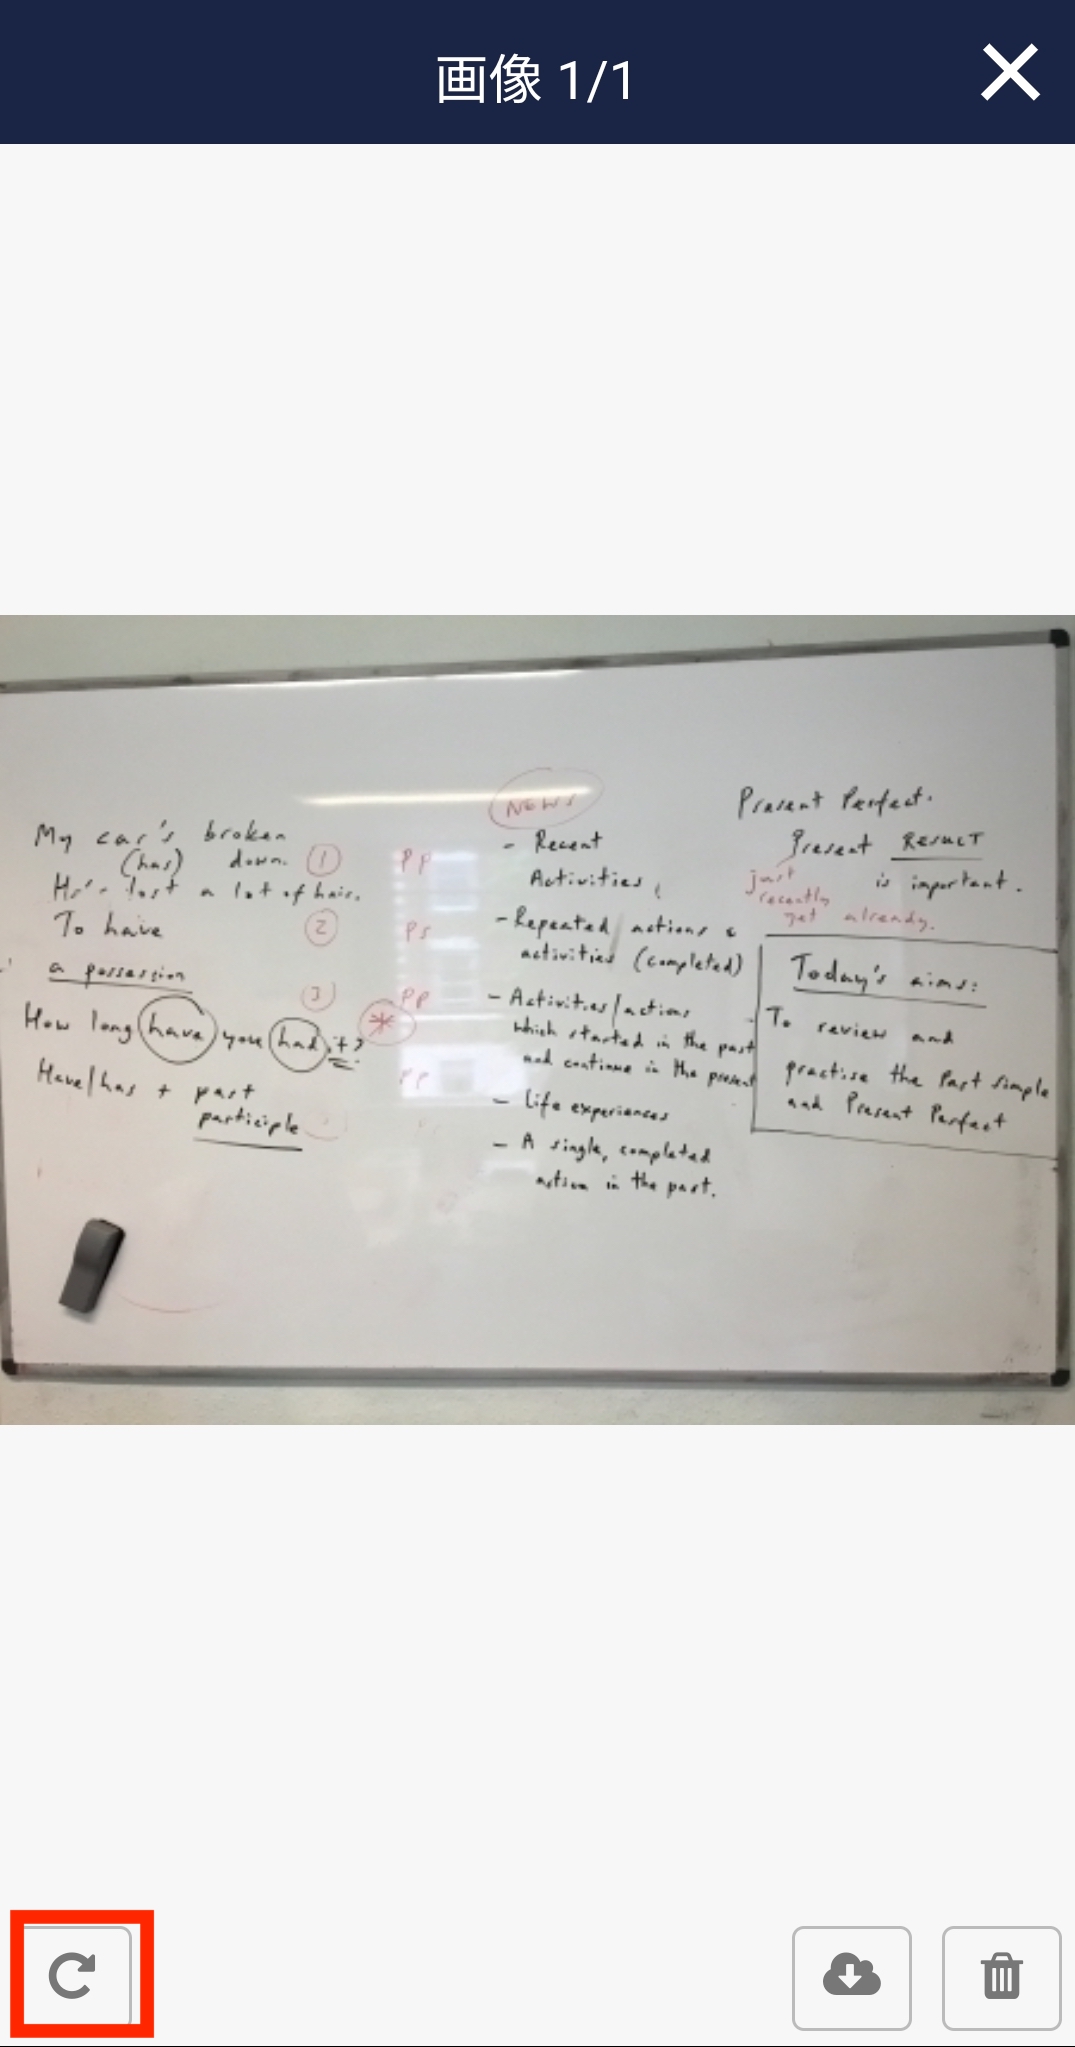 画像 1/1
My car's broken
(has) down.
He's lost a lot of hair.
To have
a possession
How long have you had it?
Have/has + past
participle
1 PP
2 PS
3 PP
*
PP
NEWS
- Recent
Activities
- Repeated actions &
activities (completed)
- Activities/actions
which started in the past
and continue in the present
- Life experiences
- A single, completed
action in the past.
Present Perfect.
Present RESULT
is important.
just
recently
yet already.
Today's aims:
To review and
practise the Past Simple
and Present Perfect